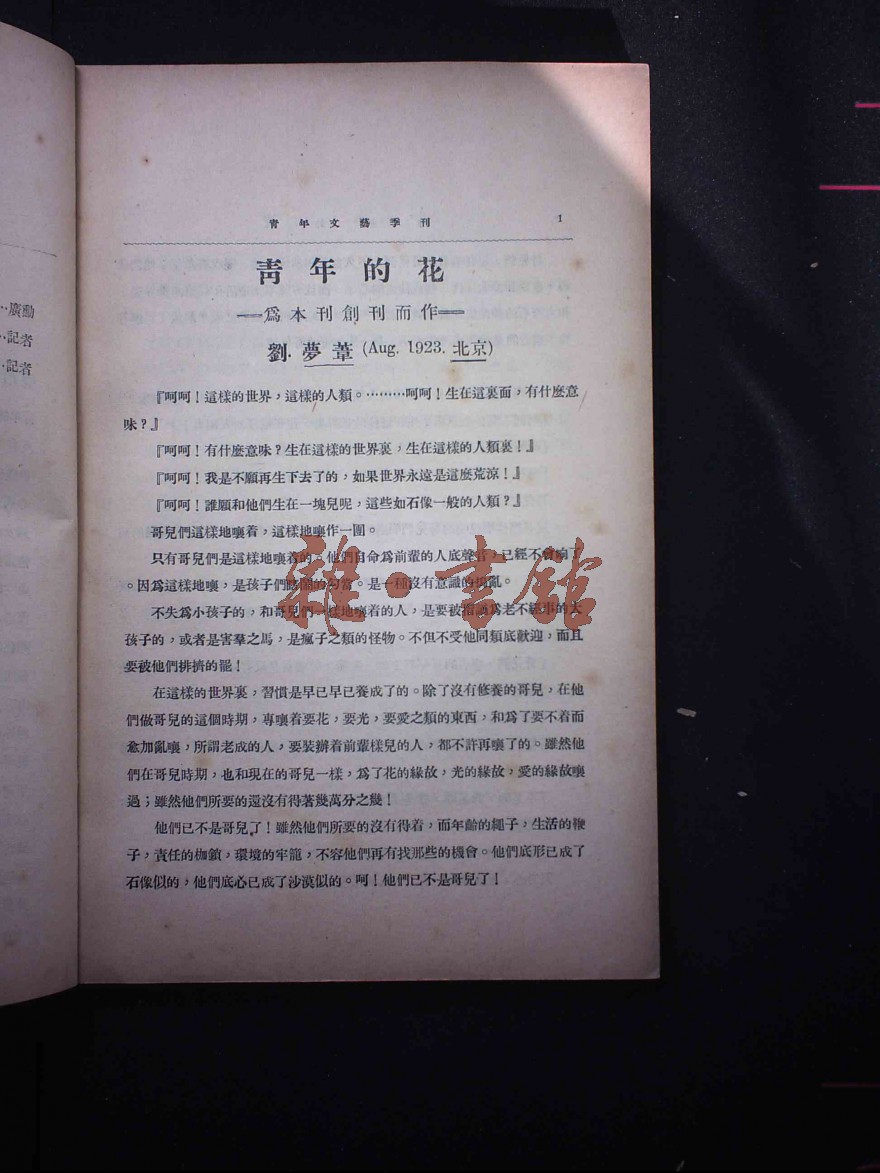 青年文藝季刊 1
青年的花
══爲本刊創刊而作══
劉．夢葦 (Aug. 1923. 北京)
『呵呵！這樣的世界，這樣的人類。………呵呵！生在這裏面，有什麼意
味？』
『呵呵！有什麼意味？生在這樣的世界裏，生在這樣的人類裏！』
『呵呵！我是不願再生下去了的，如果世界永遠是這麼荒涼！』
『呵呵！誰願和他們生在一塊兒呢，這些如石像一般的人類？』
哥兒們這樣地嚷着，這樣地嚷作一團。
只有哥兒們是這樣地嚷着的。他們自命爲前輩的人底聲音，已經不會病了
。因爲這樣地嚷，是孩子們瞎鬧的勾當。是一種沒有意識的搗亂。
不失爲小孩子的，和哥兒們一樣地嚷着的人，是要被指謫爲老不經事的大
孩子的，或者是害羣之馬，是瘋子之類的怪物。不但不受他同類底歡迎，而且
要被他們排擠的罷！
在這樣的世界裏，習慣是早已早已養成了的。除了沒有修養的哥兒，在他
們做哥兒的這個時期，專嚷着要花，要光，要愛之類的東西，和爲了要不着而
愈加亂嚷，所謂老成的人，要裝辦着前輩樣兒的人，都不許再嚷了的。雖然他
們在哥兒時期，也和現在的哥兒一樣，爲了花的緣故，光的緣故，愛的緣故嚷
過；雖然他們所要的還沒有得著幾萬分之幾！
他們已不是哥兒了！雖然他們所要的沒有得着，而年齡的繩子，生活的鞭
子，責任的枷鎖，環境的牢籠，不容他們再有找那些的機會。他們底形已成了
石像似的，他們底心已成了沙漠似的。呵！他們已不是哥兒了！
雜·書館
‥廣勳
‥記者
‥記者